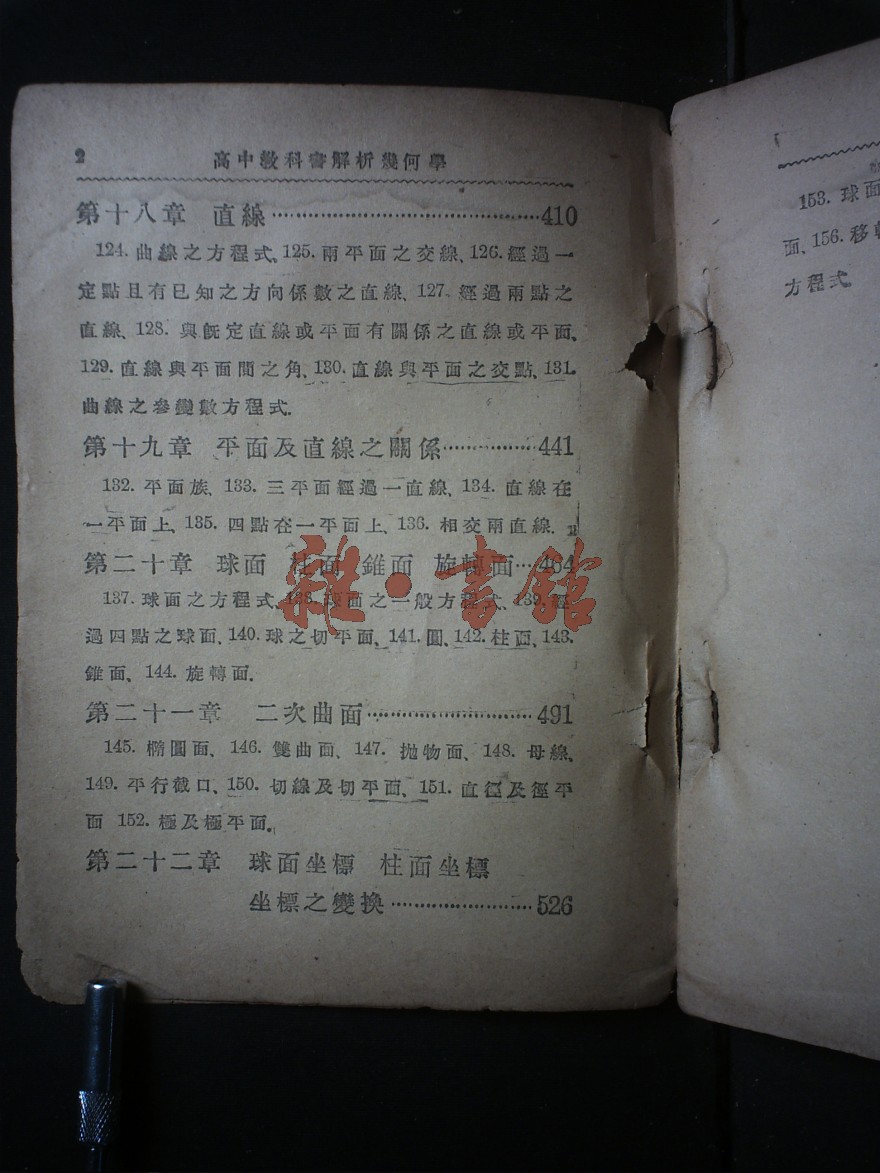 2 高中教科書解析幾何學
第十八章 直線……………………………………410
124. 曲線之方程式、125. 兩平面之交線、126. 經過一
定點且有已知之方向係數之直線、127. 經過兩點之
直線、128. 與旣定直線或平面有關係之直線或平面、
129. 直線與平面間之角、130. 直線與平面之交點、131.
曲線之參變數方程式.
第十九章 平面及直線之關係……………441
132. 平面族、133. 三平面經過一直線、134. 直線在
一平面上、135. 四點在一平面上、136. 相交兩直線.
第二十章 球面 柱面 錐面 旋轉面…464
137. 球面之方程式、138. 球面之一般方程式、139. 經
過四點之球面、140. 球之切平面、141. 圓、142. 柱面、143.
錐面、144. 旋轉面.
第二十一章 二次曲面………………………491
145. 橢圓面、146. 雙曲面、147. 拋物面、148. 母線、
149. 平行截口、150. 切線及切平面、151. 直徑及徑平
面 152. 極及極平面.
第二十二章 球面坐標 柱面坐標
坐標之變換……………………526
雜·書館
153. 球面
面、156. 移轉
方程式.